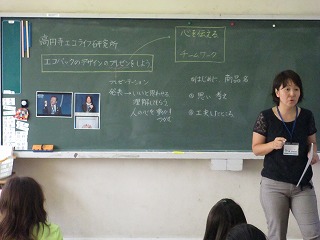 高円寺エコライフ研究所
エコバックのデザインのプレゼンをしよう
心を伝える
チームワーク
プレゼンテーション
発表→いいと思わせる
理解してもらう
人の心を動かす
はじめに 商品名
思い 考え
工夫したところ